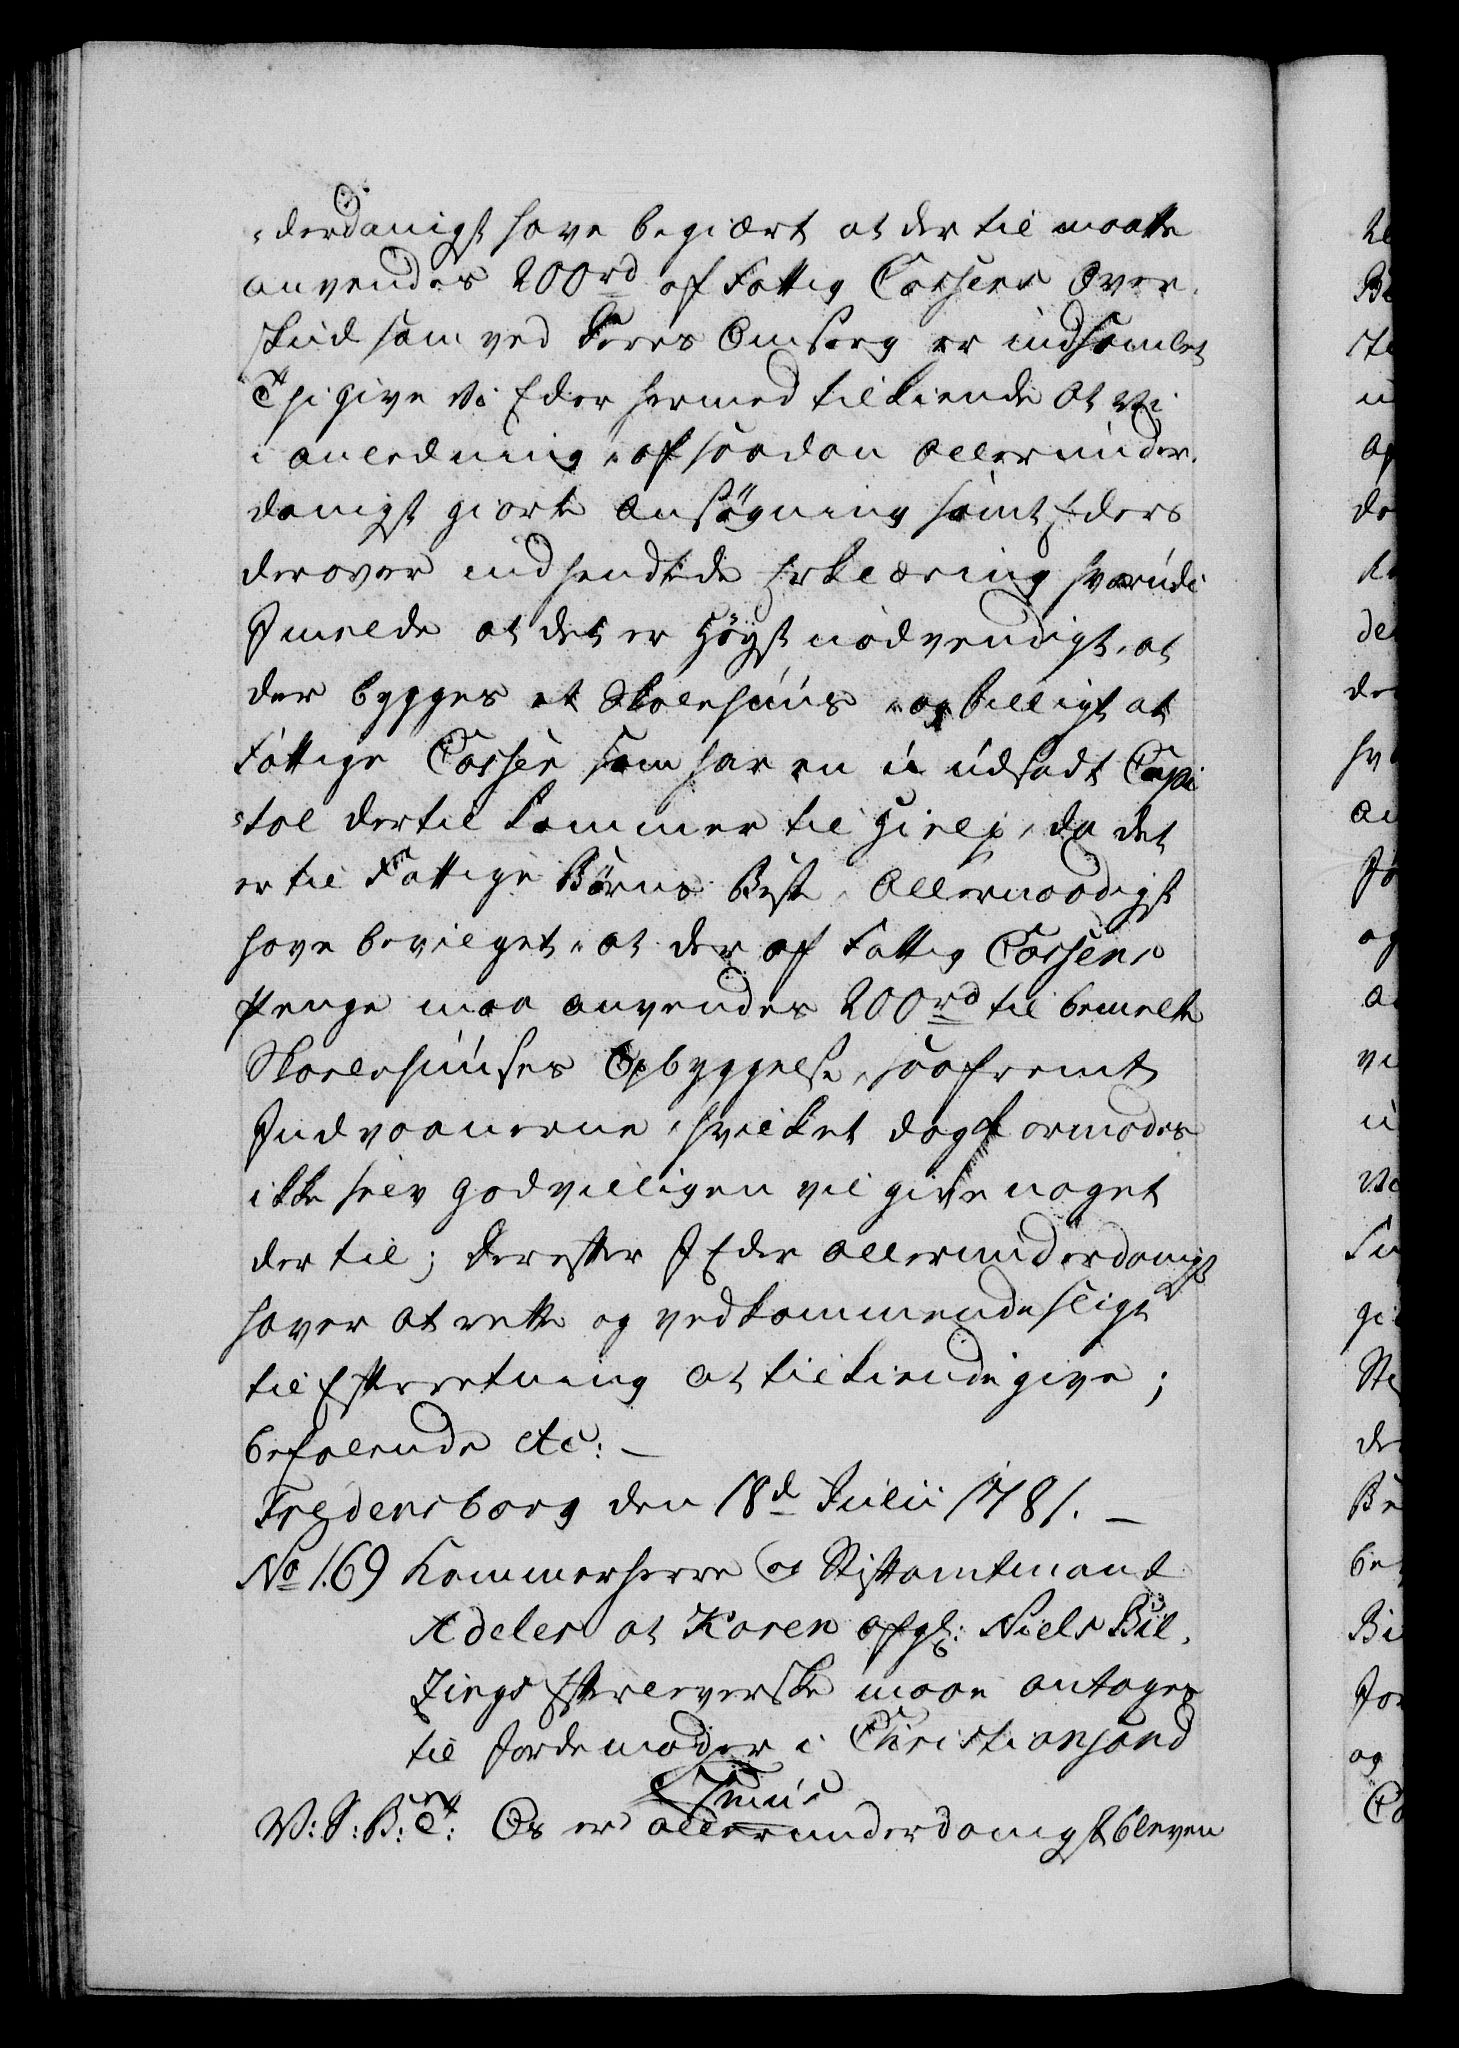 "derdanigst have begiært at der til maatte
anvendes 200rd af Fattig Cassens Over
skud som ved deres Omsorg er indsamlet
Thi give Vi Eder hermed tilkiende At Vi
i anledning af saadan Allerunder
danigst giorte Ansøgning samt Eders
derover indsendte Erklæring hvorudi
I melde at det er høyst nødvendigt, at
der bygges et Skolehuus og billigt at
Fattige Cassen som har en u-udsadt Capi
"tal dertil kommer til Hielp, da det
er til Fattige Børns Best, Allernaadigst
have bevilget, at der af Fattig Cassens
Penge maa anvendes 200rd til bemelte
Skolehuuses Opbyggelse, saafremt
Indvaanerne, hvilket dog formodes
ikke selv godvilligen vil give noget
der til; Derefter I Eder allerunderdanigst
haver at rette og vedkommende sligt
til Efterretning at tilkiendegive;
befalende etc: –
Fredensborg den 18d Julii 1781. –
No 169 Kammerherre og Stiftamtmand
Adeler at Karen afgl: Niels Bil,
Zings Efterleverske maae antages
til Jordemoder i Christiansand
V: S: B: Ct: Os er allerunderdanigst bleven